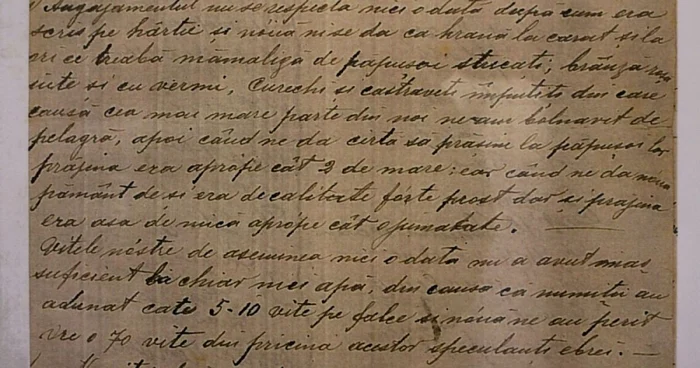 Angajamentul nu se respecta nici o dată după cum era
scris pe hârtie si nóuă ni se da ca hrană la carat si la
ori ce treabă mămăligă de păpusoi stricati; brânza
iute si cu vermi, Curechi si castraveti împutiti din care
causă cea mai mare parte din noi ne-am bolnavit de
pelagră, apoi când ne da cirta sa prăsim la păpusoi lor
prăjina era aprópe cât 2 de mare; iar când ne da nóua
pământ de si era de calitate fórte prost dar si prajina
era asa de mică aprópe cât o jumatate.
Vitele nóstre de asemenea nici o dată nu a avut imas
suficient ba chiar nici apă, din causa ca numitii au
adunat cate 5-10 vite pe falce si nóuă ne au perit
vre o 70 vite din pricina acestor speculanti ebrei. —